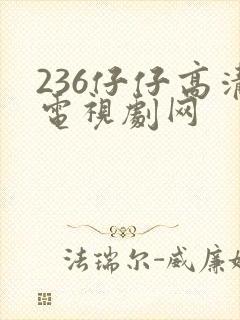 236仔仔高清
電視劇网
法瑞尔-威廉姆